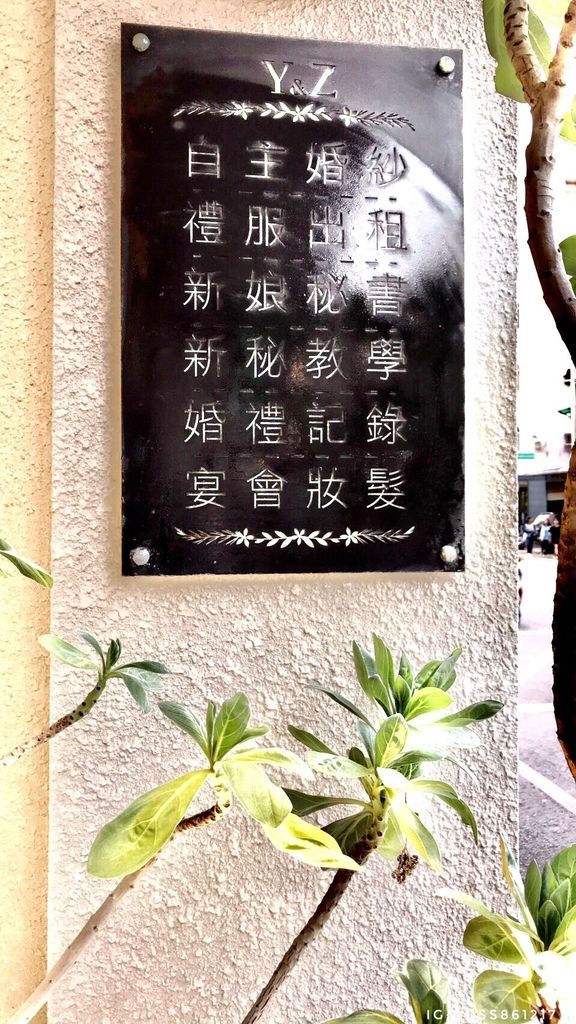 Y&Z
自主婚紗
禮服出租
新娘秘書
新秘教學
婚禮記錄
宴會妝髮